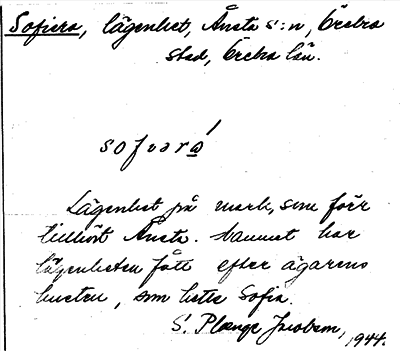 Sofiero, lägenhet, Ånsta s:n, Örebro
stad, Örebro län.
sofıərώ̲
Lägenhet på mark, som förr
tillhört Ånsta. Namnet har
lägenheten fått efter ägarens
hustru, som hette Sofia.
S. Plænge Jacobson, 1944.